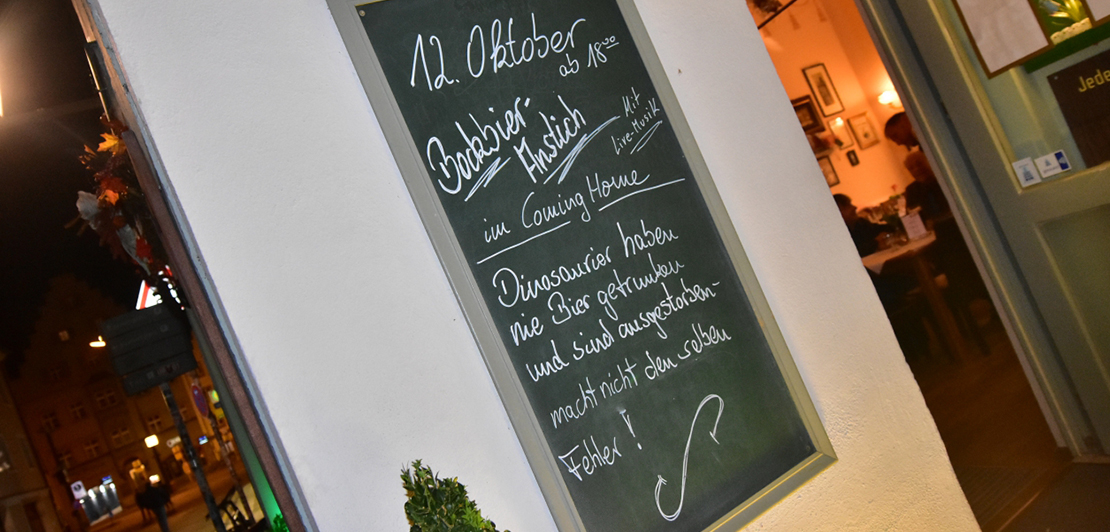 12. Oktober
ab 18⁰⁰
Bockbier-
Anstich
Mit
Live-Musik
im Coming Home
Dinosaurier haben
nie Bier getrunken
und sind ausgestorben-
macht nicht den selben
Fehler!
Jede